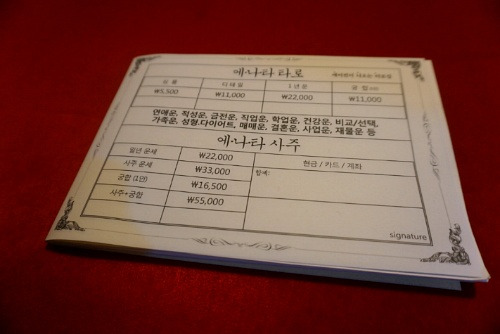 에나타 타로
디테일 1년운 궁합
₩5,500 ₩11,000 ₩22,000 ₩11,000
연애운, 적성운, 금전운, 직업운, 학업운, 건강운, 비교/선택,
가족운, 성형.다이어트, 매매운, 결혼운, 사업운, 재물운 등
에나타 사주
일년 운세 ₩22,000 현금 / 카드 / 계좌
사주 운세 ₩33,000 합계:
궁합 (1인) ₩16,500
사주+궁합 ₩55,000
signature